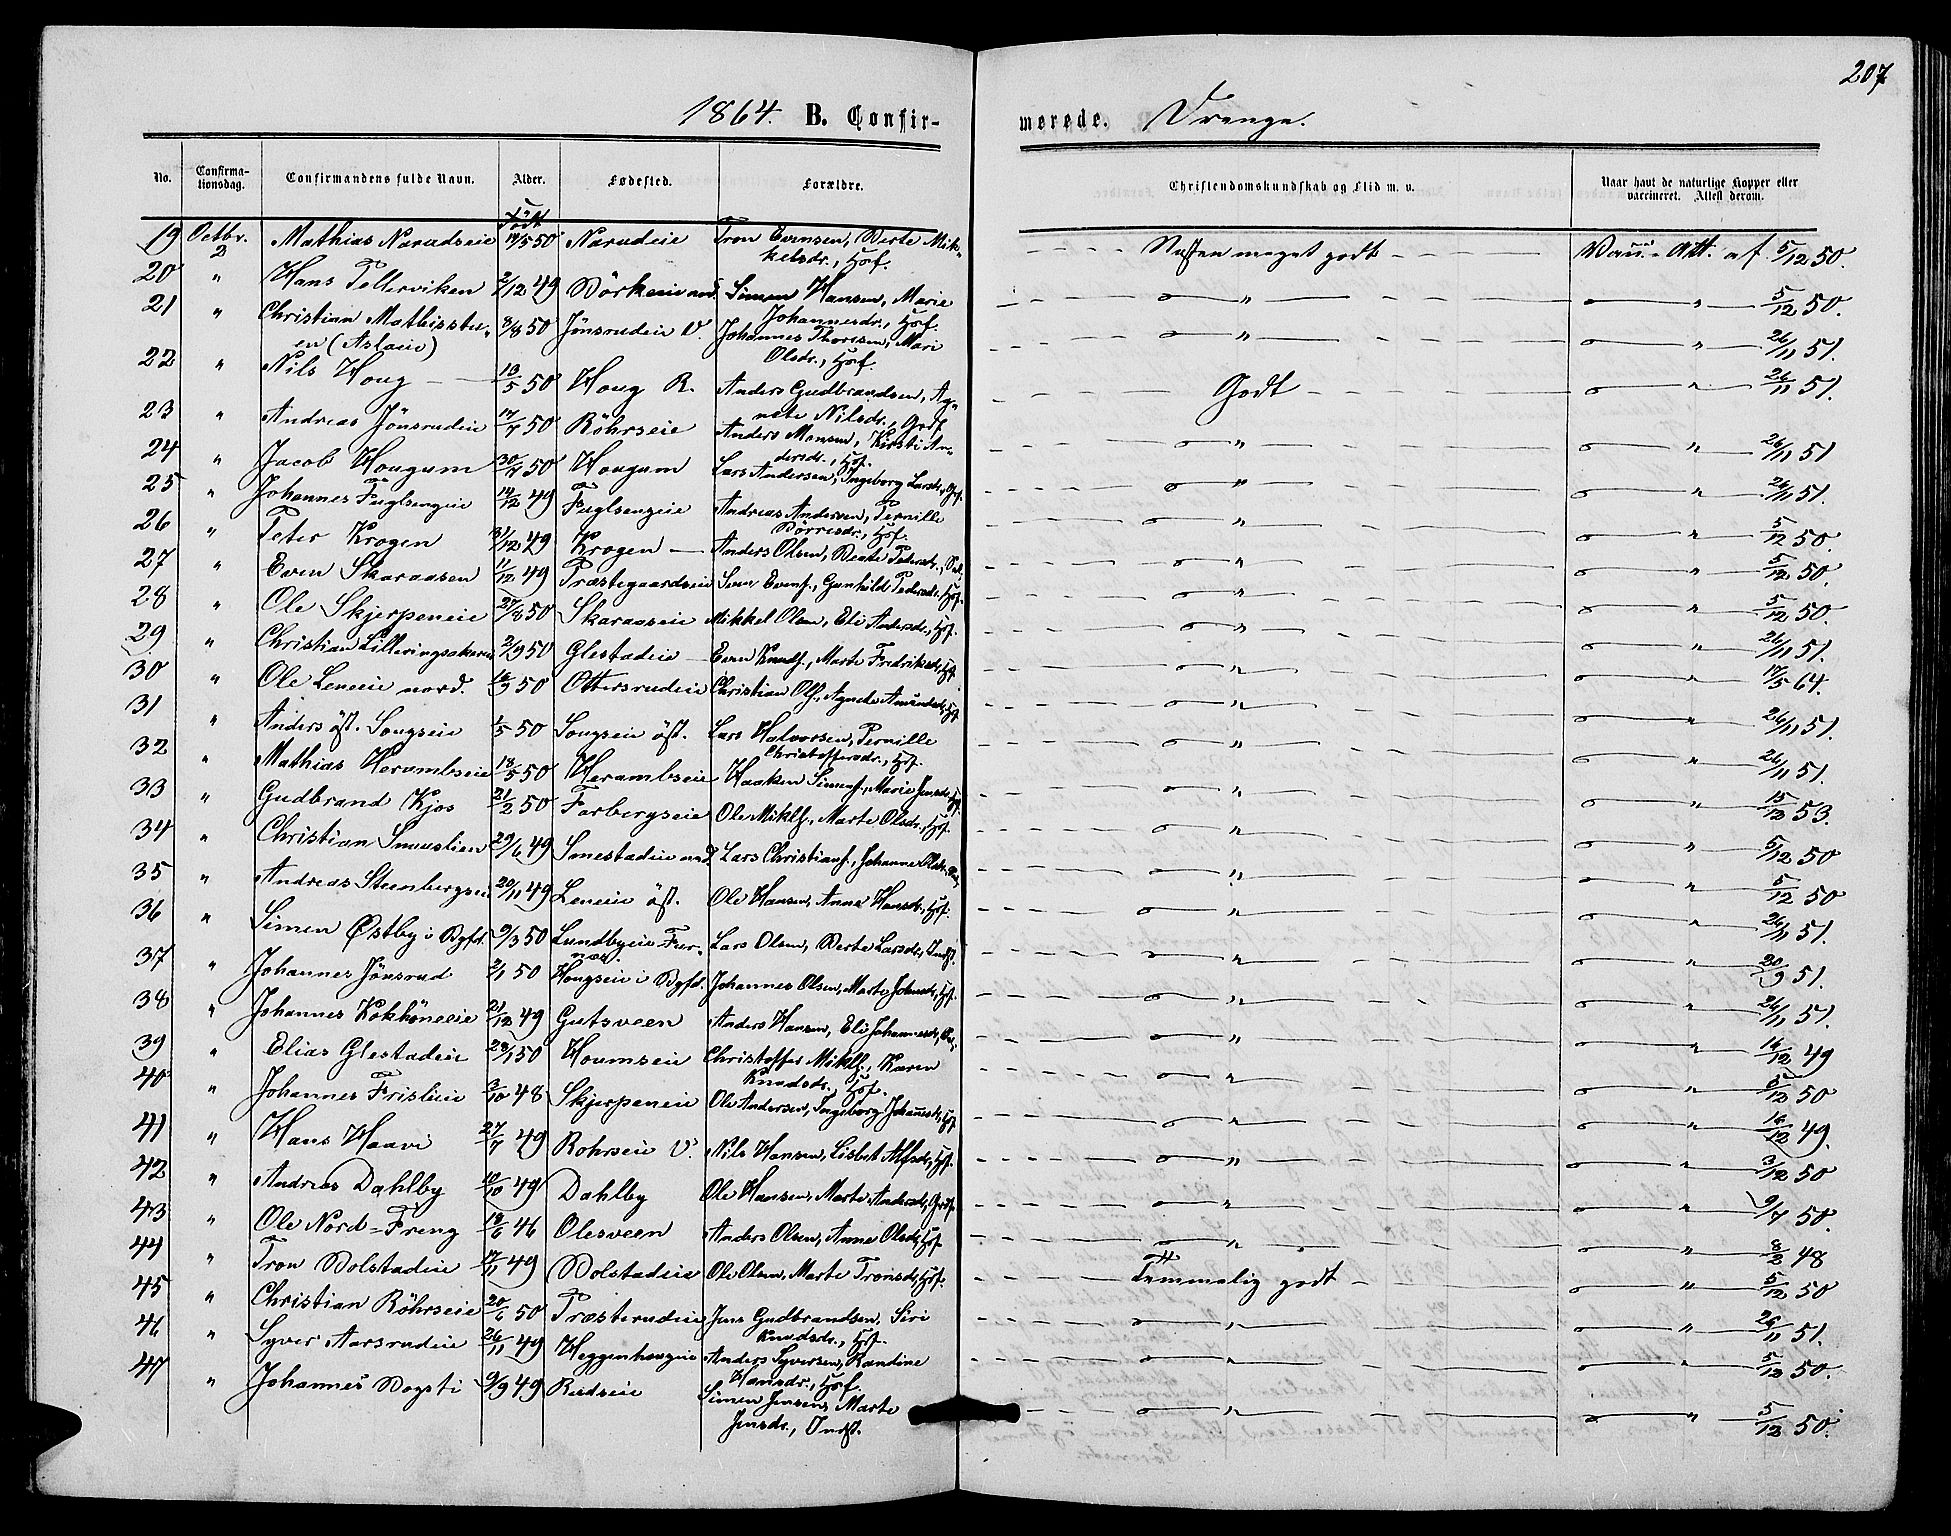 207
1864. B. Confir- merede. Drenge.
No. Confirma-tionsdag. Confirmandens fulde Navn. Alder. Fødested. Forældre. Christendomskundskab og Flid m. v. Naar havt de naturlige Kopper eller vaccineret. Attest derom.
Född
19 Octbr. 2 Mathias Narudseie 50 Narudeie Tron Evensen, Berte Mik-
kelsdr., Hof. Næsten meget godt Att. af 5/12 50.
20 " Hans Tellerviken 2/12 49 Simen Hansen, Marie
Johannesdr., Hof. " " 5/12 50.
21 " Christian Mathisstu- 8/8 50 Jönsrudeie V. Johannes Thorsen, Mari
en (Aslaeie) Olsdr., Hof. " " 26/11 51.
22 " Nils Houg 13/5 50 Houg R. Anders Gudbrandsen, Ag-
nete Nilsdr., Godt " 26/11 51.
23 " Andreas Jönsrudeie 17/7 50 Röhrseie Anders Monsen, Kirsti An-
dersdr., Hof. " " 26/11 51
24 " Jacob Hougum 30/7 50 Hougum Lars Andersen, Ingeborg Larsdr., Hof. " " 26/11 51.
25 " Johannes Fuglsengeie 14/12 49 Fuglsengeie Andreas Andersen, Pernille
Börresdr., Hof. " " 5/12 50.
26 " Peter Krogen 31/12 49 Krogen Anders Olsen, Beate Pedersdr., " " 5/12 50.
27 " Even Skaraasen 11/12 49 Præstegaardseie Sven Evens., Gunhild Pedersdr. Hof. " " 5/12 50.
28 " Ole Skjerpeneie 27/8 50 Skaraaseie Mikkel Olsen, Eli Andersdr., Hof. " " 26/11 51.
29 " Christian Lilleringsakereie 2/9 50 Glestadeie Even Knuds., Marte Fredriksdr., Hof. " " 17/5 64.
30 " Ole Leneie nord. 16/9 50 Ottersrudeie Christian Ols., Agnete Amundsdr., Hof. " " 26/11 51.
31 " Anders öst. Sougseie 1/5 50 Sougseie öst. Lars Halvorsen, Pernille
Christoffersdr., Hof. " " 26/11 51.
32 " Mathias Herambseie 18/5 50 Herambseie Haaken Simens., Marie Jensdr., Hof. " " 15/12 53.
33 " Gudbrand Kjos 21/2 50 Farbergseie Ole Mikls., Marte Olsdr., Hof. " " 5/12 50
34 " Christian Snuuslien 29/6 49 Smestadeie nord. Lars Christians., Johanne Olsdr., " " 5/12 50
35 " Andreas Steenbergseie 20/11 49 Leneie öst. Ole Hansen, Anne Hansdr., Hof. " " 26/11 51.
36 " Simen Østby i Bgfd. 9/3 50 Lundbyeie Fur-
næs. Lars Olsen, Berte Larsdr., Indst. " " 20/9 51.
37 " Johannes Jönsrud 2/1 50 Hougseie i Bgfd. Johannes Olsen, Marte Johnsdr., Hof. " " 26/11 51.
38 " Johannes Kokhöneeie 21/12 49 Gutsveen Anders Hansen, Eli Johannesdr., " " 16/12 49
39 " Elias Glestadeie 28/1 50 Houmseie Christoffer Mikls., Karen
Knudsdr., Hof. " " 5/12 50
40 " Johannes Frislieie 3/10 48 Skjerpeneie Ole Andersen, Ingeborg Johannesdr., Hof. " " 16/12 49.
41 " Hans Haavi 27/7 49 Rohrseie V. Nils Hansen, Lisbet Alfsdr., Hof. " " 3/12 50
42 " Andreas Dahlby 10/10 49 Dahlby Ole Hansen, Marte Andersdr., " " 9/7 50.
43 " Ole Nord-Freng 18/6 46 Olesveen Anders Olsen, Anne Olsdr., Hof. " " 8/2 48
44 " Tron Bolstadeie 17/11 49 Bolstadeie Ole Olsen, Marte Tronsdr., Hof. Temmelig godt " 5/12 50
45 " Christian Röhrseie 20/6 50 Præsterudeie Jens Gudbrandsen, Siri
Knudsdr., Hof. " " 26/11 51.
46 " Syver Aarsrudeie 26/11 49 Heggenhougeie Anders Syversen, Randine
Hansdr., Hof. " " 5/12 50.
47 " Johannes Bogsti 9/9 49 Rudseie Simen Jensen, Marte
Jensdr., Indst. " " 5/12 50.